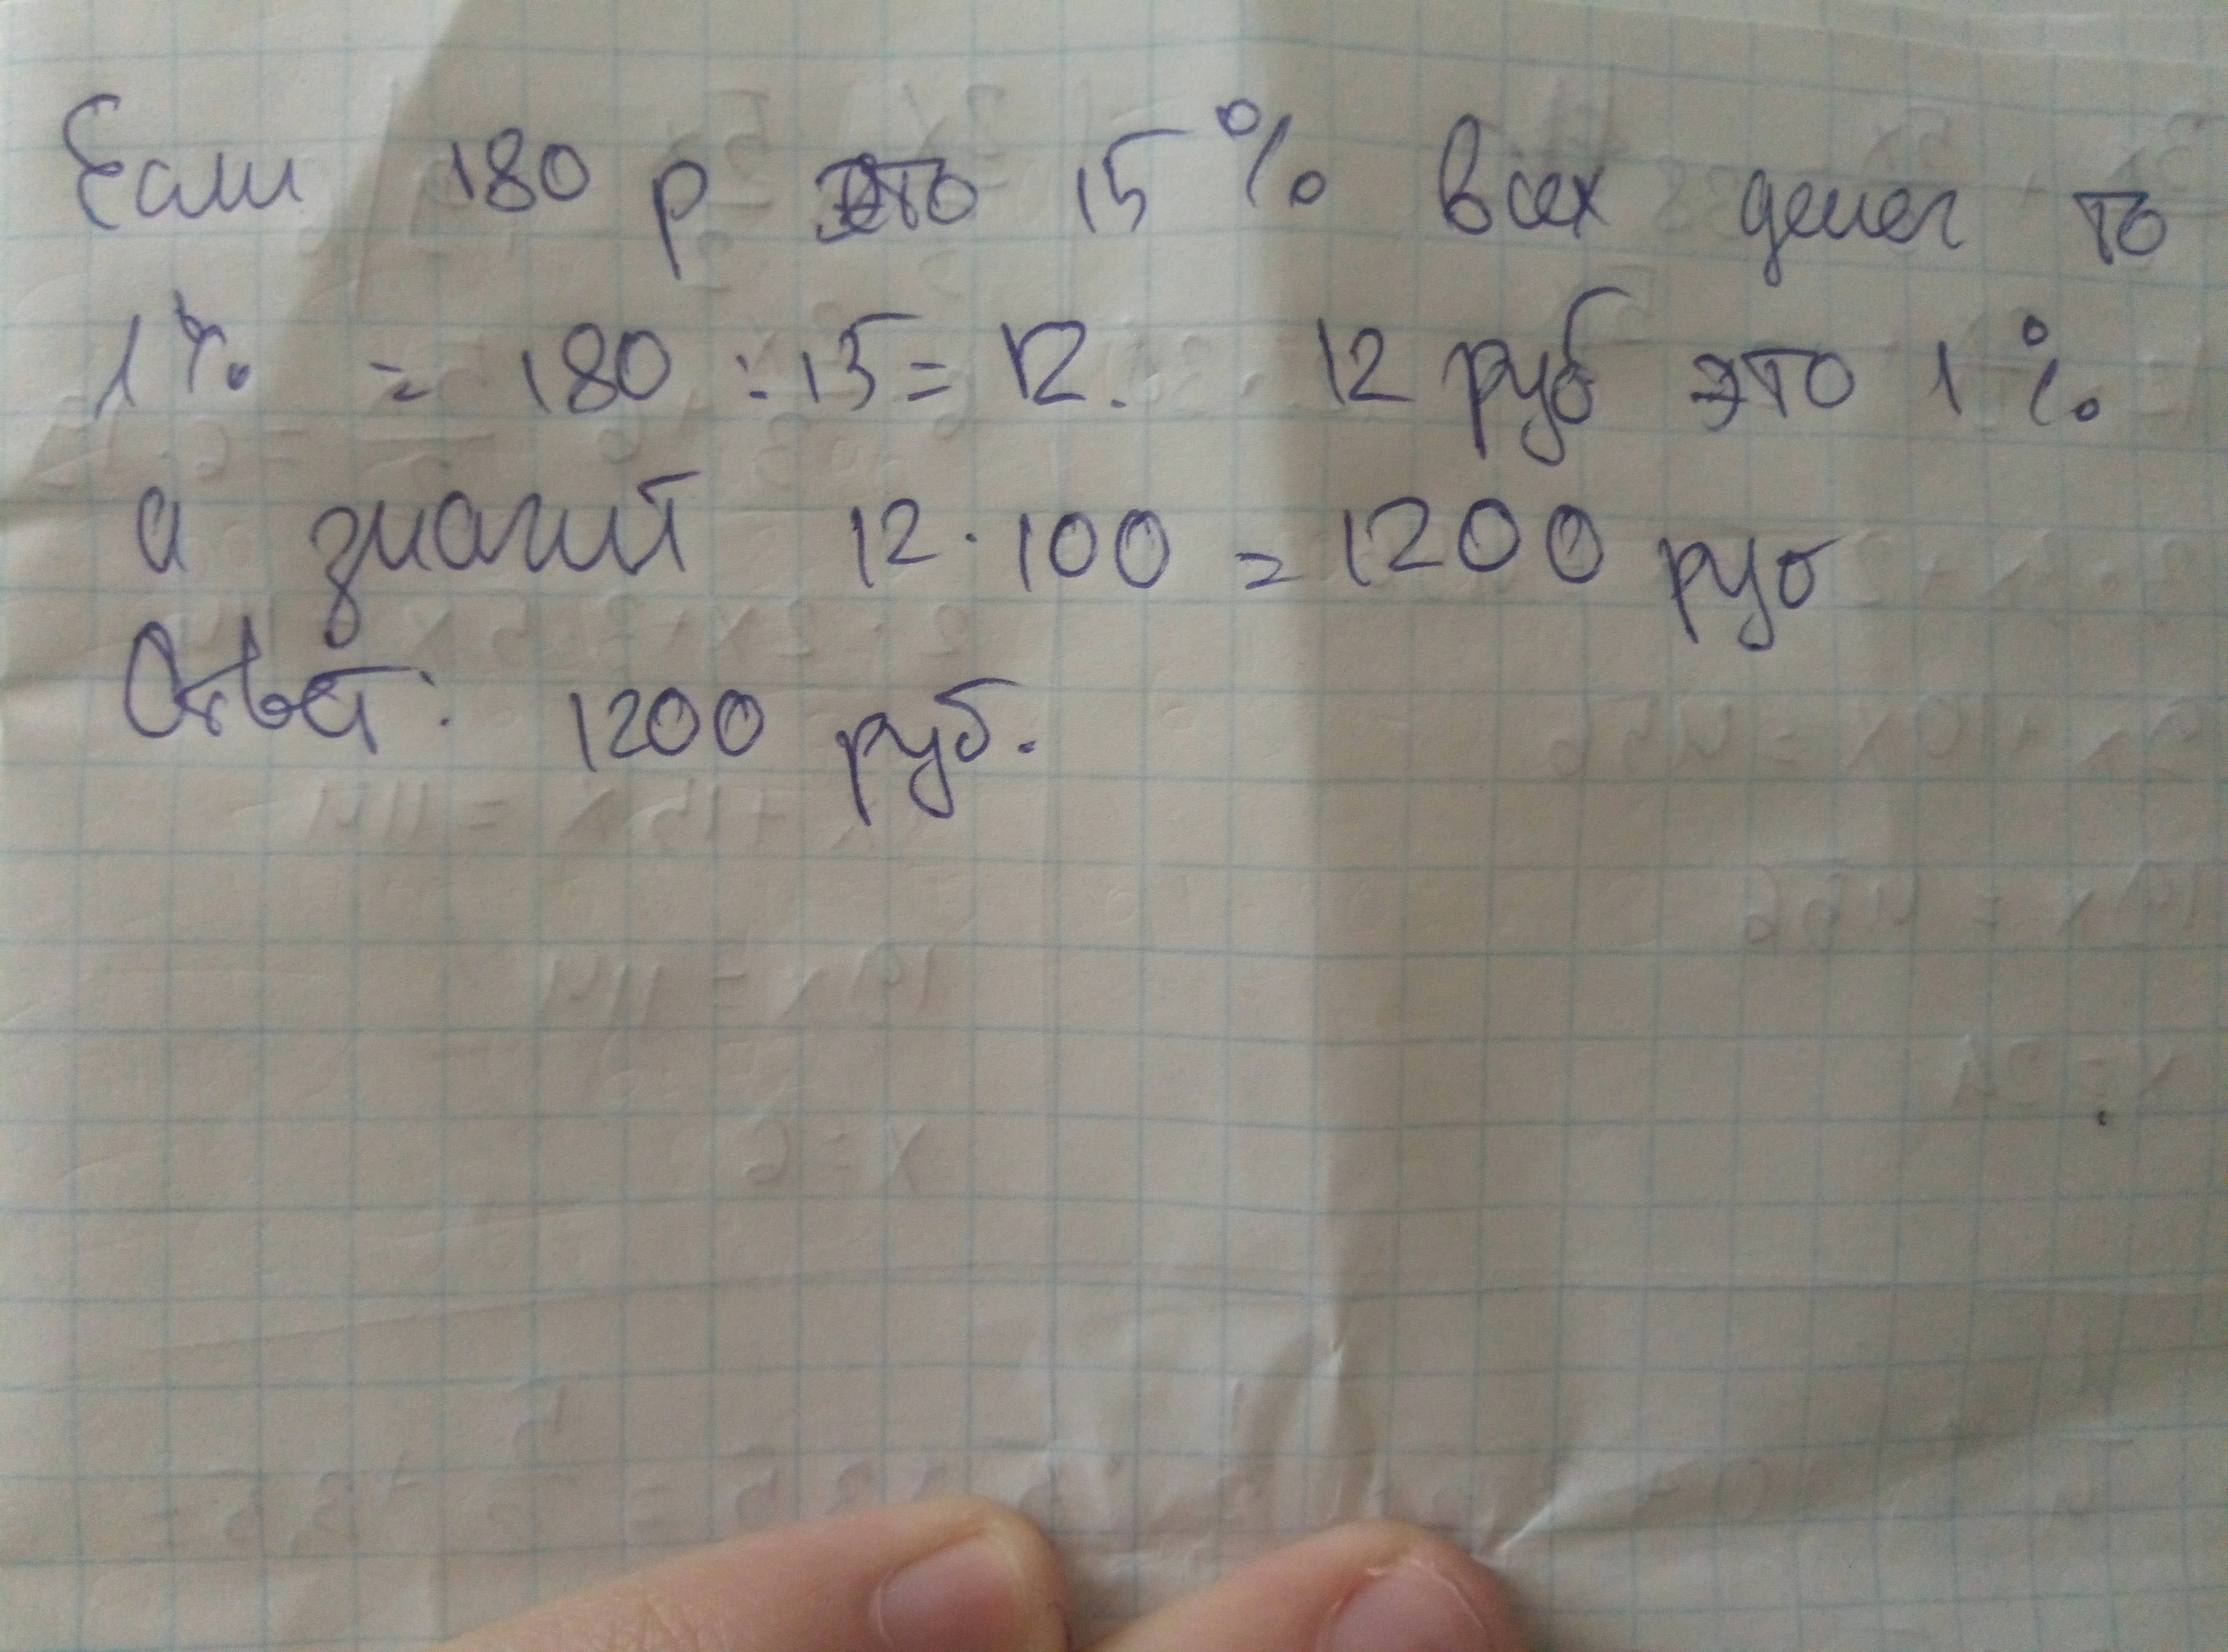 Если 180 р это 15% всех денег то
1% = 180 : 15 = 12. 12 руб это 1%
а значит 12 · 100 = 1200 руб
Ответ: 1200 руб.